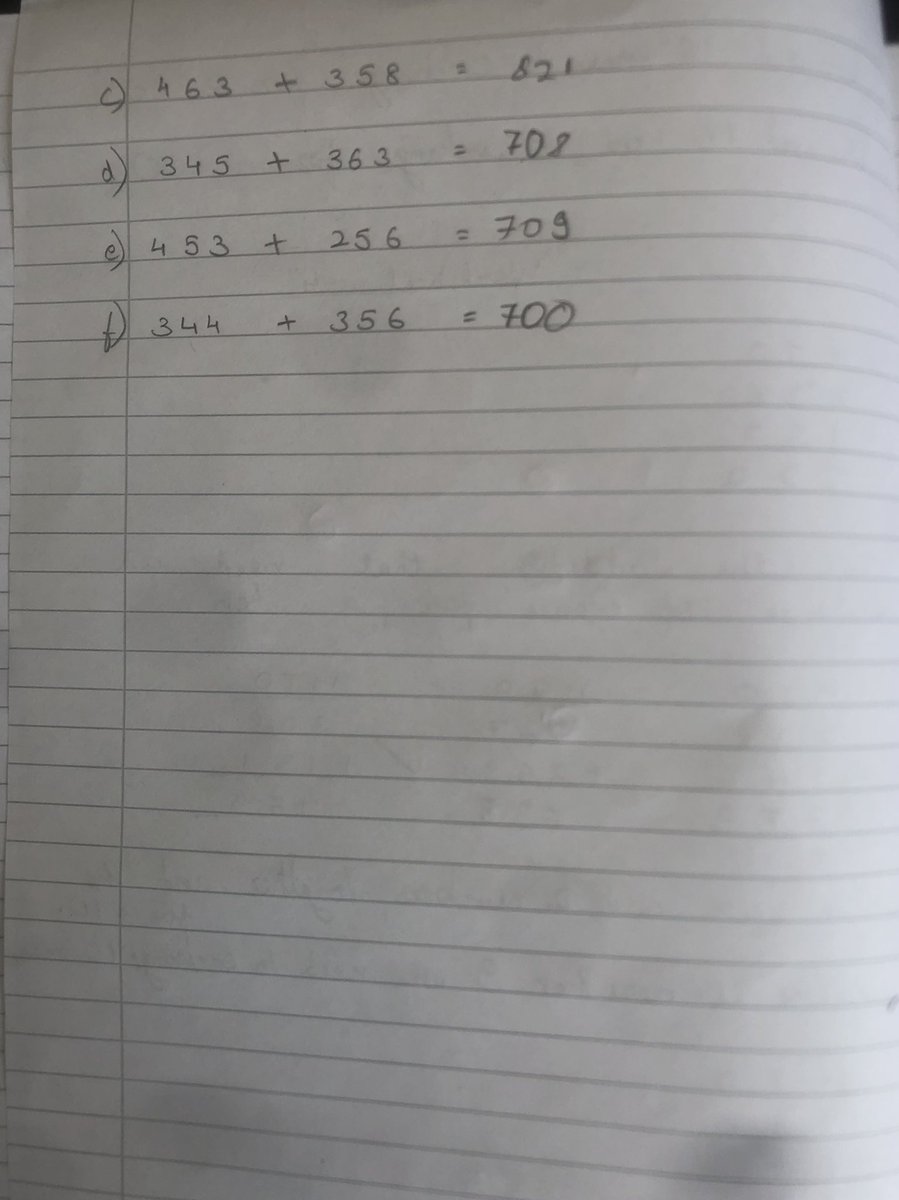 c) 463 + 358 = 821
d) 345 + 363 = 708
e) 453 + 256 = 709
f) 344 + 356 = 700